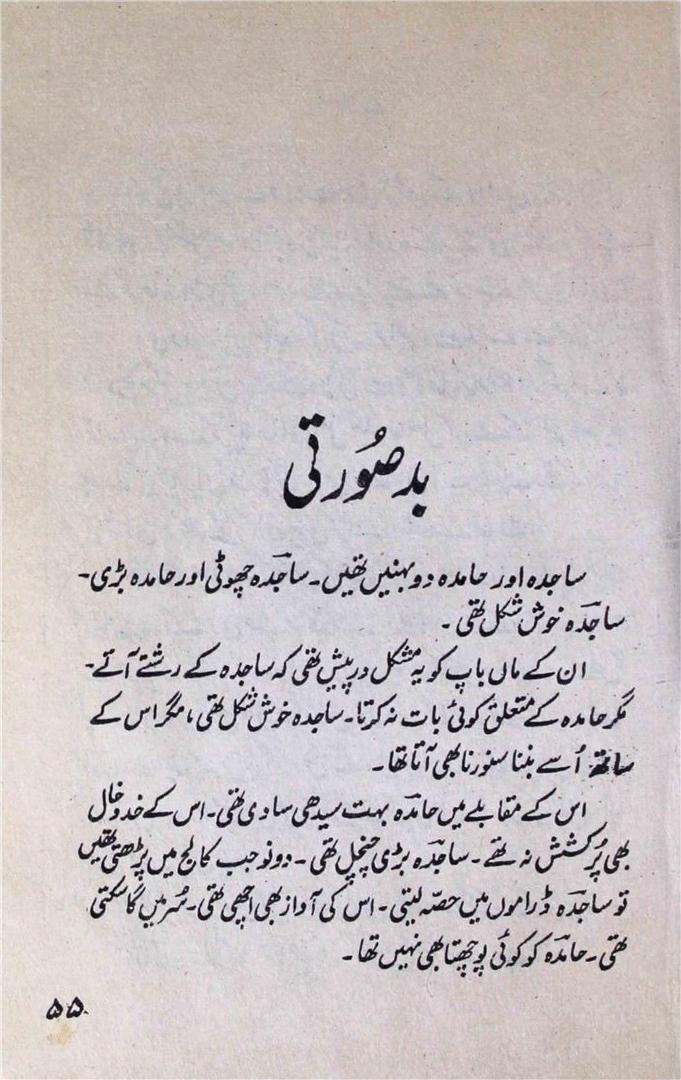 بد صُورتی
ساجدہ اور حامدہ دو بہنیں تھیں۔ ساجدہ چھوٹی اور حامدہ بڑی۔
ساجدہ خوش شکل تھی۔
ان کے ماں باپ کو یہ مشکل درپیش تھی کہ ساجدہ کے رشتے آتے۔
مگر حامدہ کے متعلق کوئی بات نہ کرتا۔ ساجدہ خوش شکل تھی، مگر اس کے
ساتھ اُسے بننا سنورنا بھی آتا تھا۔
اس کے مقابلے میں حامدہ بہت سیدھی سادی تھی۔ اس کے خدوخال
بھی پُرکشش نہ تھے۔ ساجدہ بڑی چنچل تھی۔ دونو جب کالج میں پڑھتی تھیں
تو ساجدہ ڈراموں میں حصّہ لیتی۔ اس کی آواز بھی اچھی تھی۔ سُر میں گا سکتی
تھی۔ حامدہ کو کوئی پوچھتا بھی نہیں تھا۔
۵۵